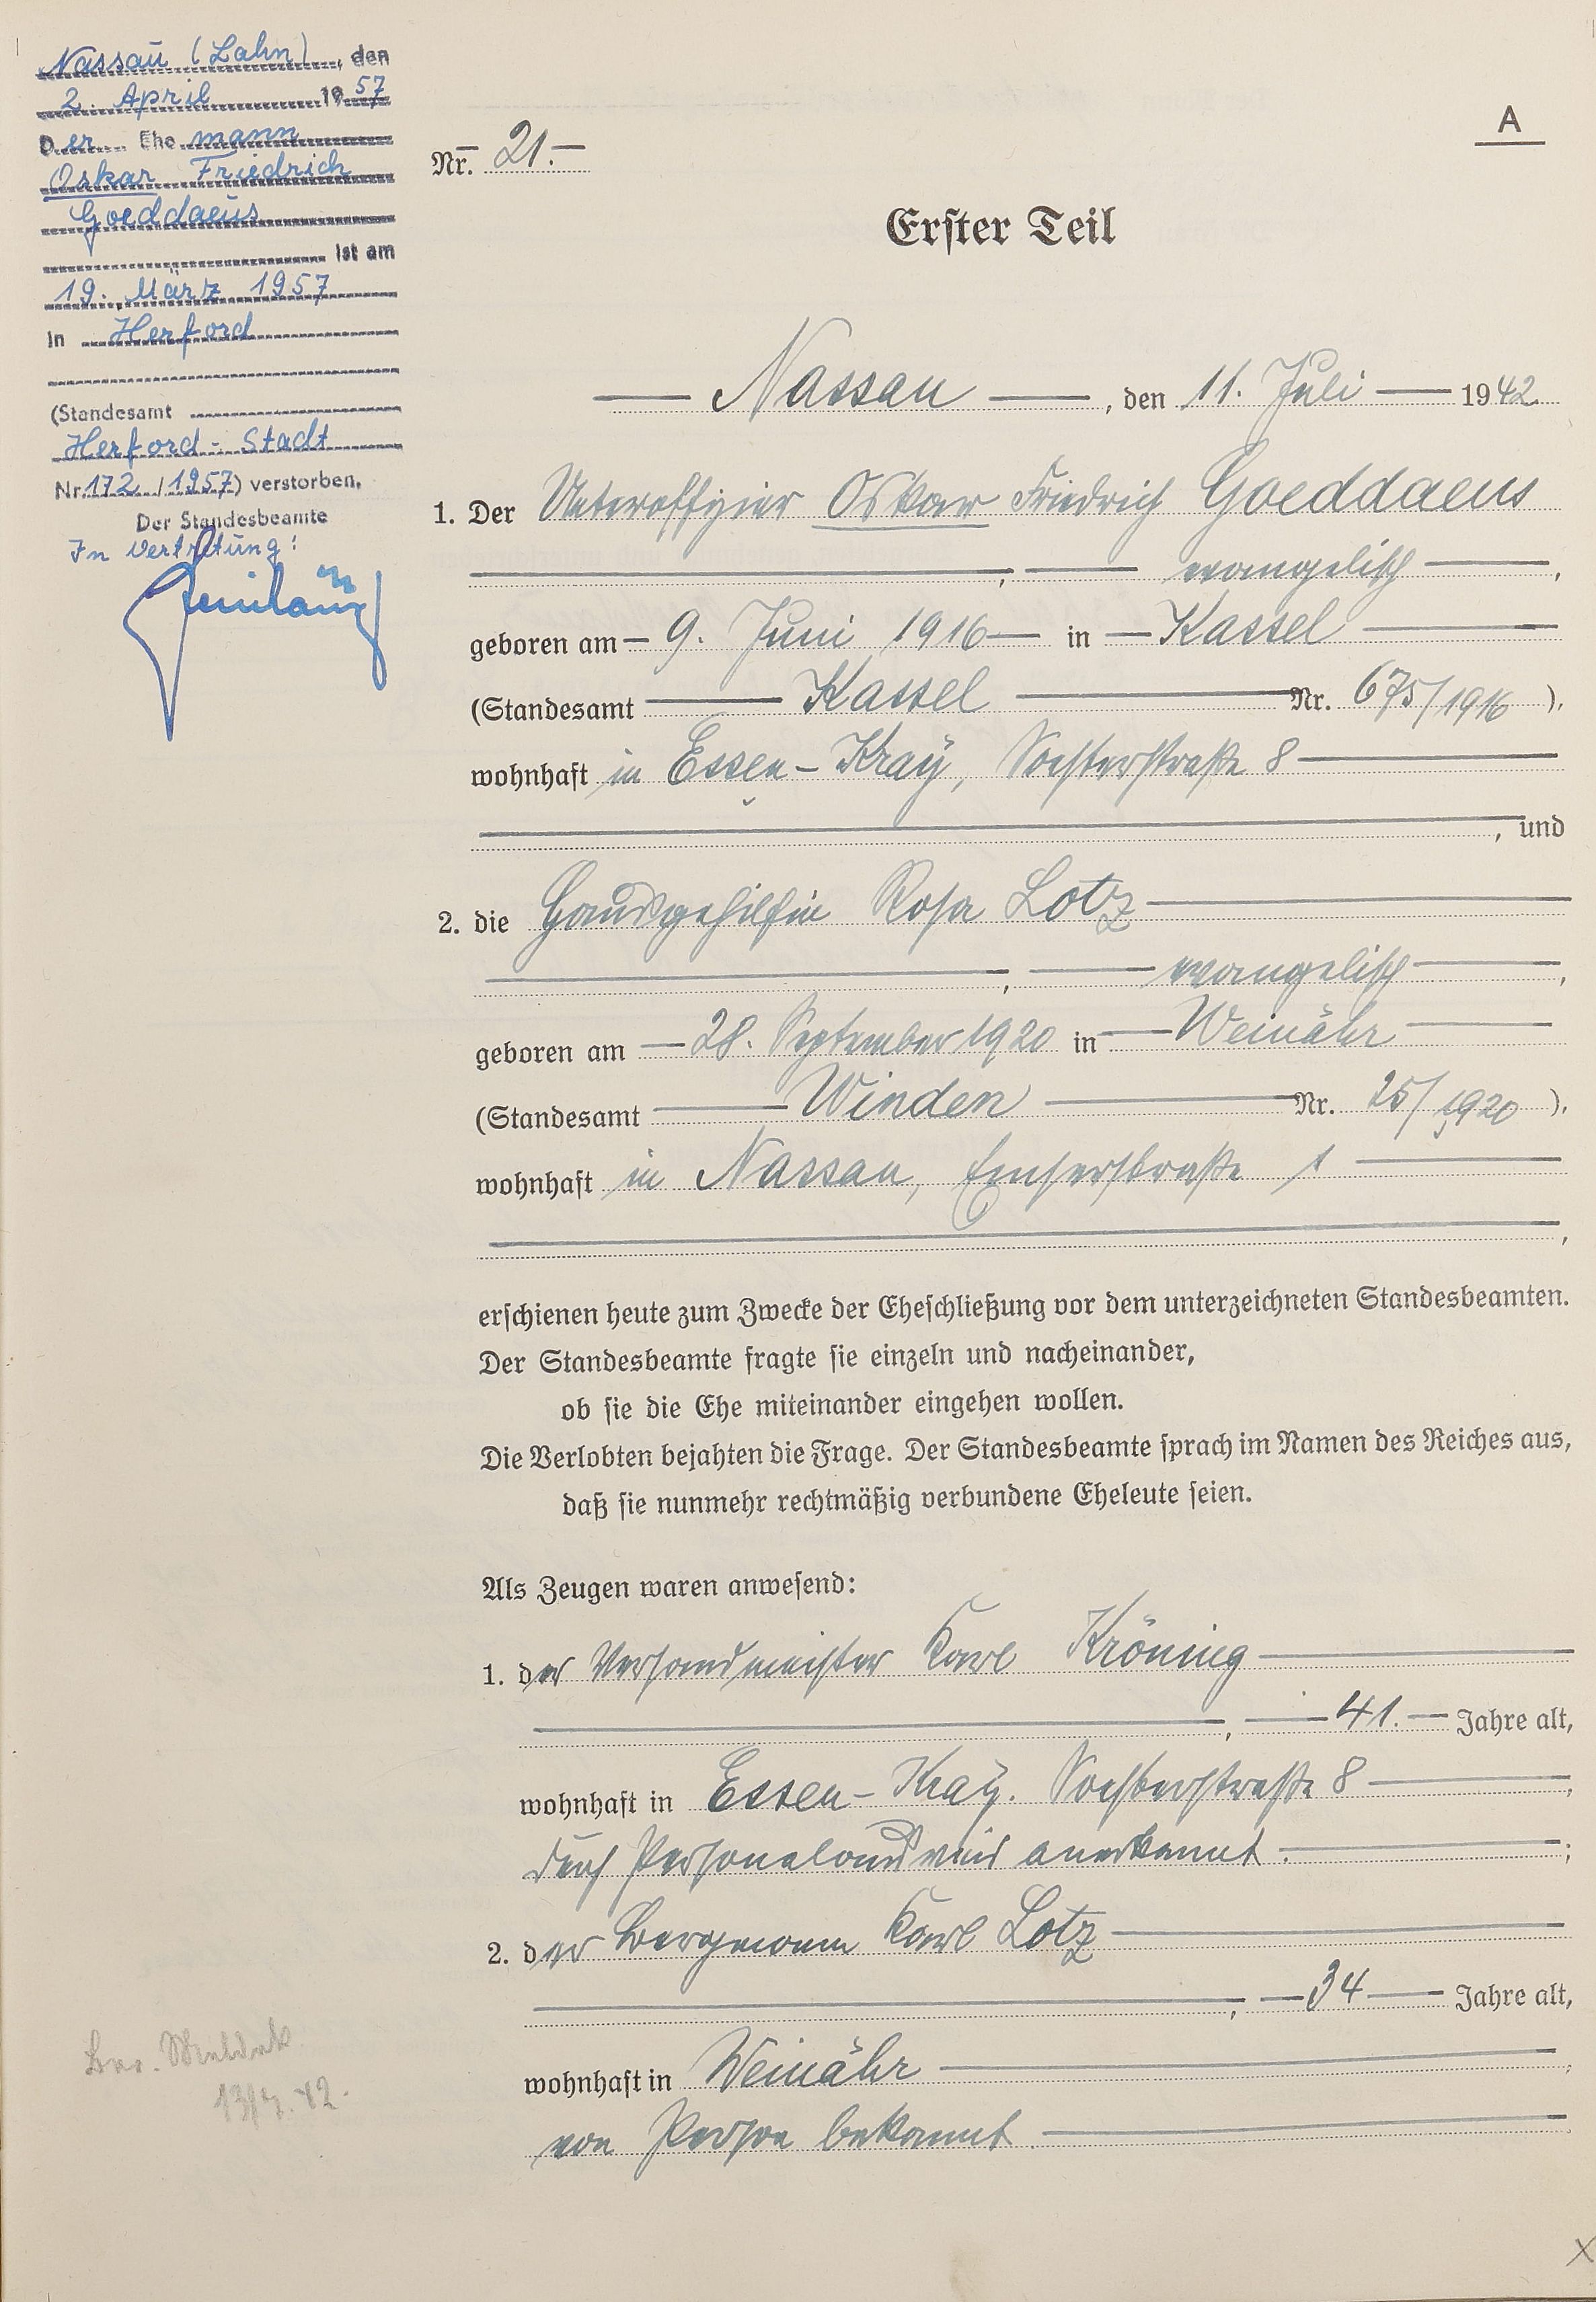 Nassau (Lahn), den
2. April 1957
Der Ehemann
Oskar Friedrich
Goeddaeus
ist am
19. März 1957
in Herford
(Standesamt
Herford-Stadt
Nr. 172/1957) verstorben.
Der Standesbeamte
In Vertretung:
A
Nr. 21.-
Erster Teil
Nassau, den 11. Juli 1942
1. Der Unteroffizier Oskar Friedrich Goeddaeus
, evangelisch,
geboren am 9. Juni 1916 in Kassel
(Standesamt Kassel Nr. 675/1916),
wohnhaft in Essen-Kray, Soesterstraße 8
, und
2. die Hausgehilfin Rosa Lotz
, evangelisch,
geboren am 28. September 1920 in Weinähr
(Standesamt Winden Nr. 25/1920),
wohnhaft in Nassau, Emserstraße 1
,
erschienen heute zum Zwecke der Eheschließung vor dem unterzeichneten Standesbeamten.
Der Standesbeamte fragte sie einzeln und nacheinander,
ob sie die Ehe miteinander eingehen wollen.
Die Verlobten bejahten die Frage. Der Standesbeamte sprach im Namen des Reiches aus,
daß sie nunmehr rechtmäßig verbundene Eheleute seien.
Als Zeugen waren anwesend:
1. der Versandmeister Karl Kröning
, 41. Jahre alt,
wohnhaft in Essen-Kray. Soesterstraße 8,
durch Personalausweis anerkannt.;
2. der Bergmann Karl Lotz
, 34 Jahre alt,
wohnhaft in Weinähr,
von Person bekannt.
13/7.42.
X